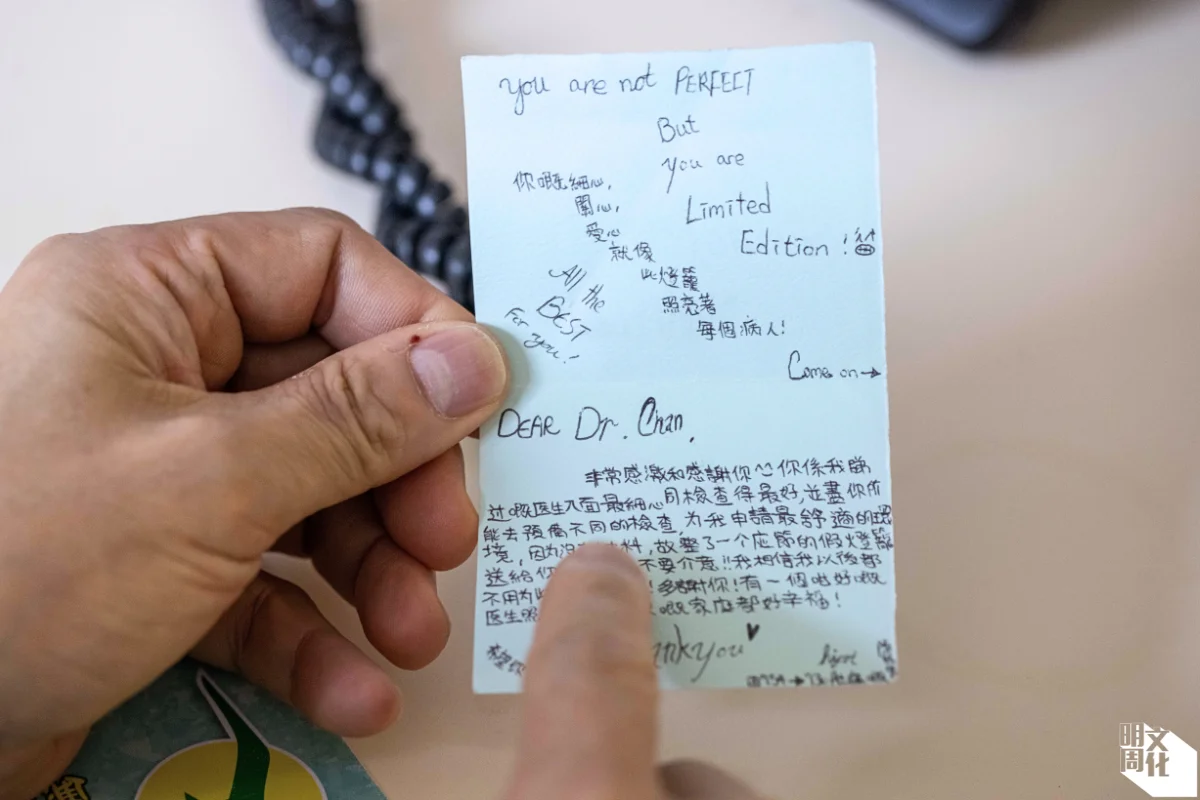 you are not PERFECT
But
you are
Limited
Edition!
你嘅細心,
關心,
愛心
就像
此燈籠
照亮著
每個病人!
All the
BEST
For you!
Come on→
DEAR Dr. Chan,
非常感激和感謝你^^你係我睇
过嘅医生入面最細心同檢查得最好,並盡你所
能去預備不同的檢查,为我申請最舒適的環
境,因为沒 料,故整了一个应節的假燈籠
送給你 不要介意!!我相信我以後都
不用为 多謝你!有一個咁好嘅
医生照 嘅家庭都好幸福!
nkyou
明周
文化